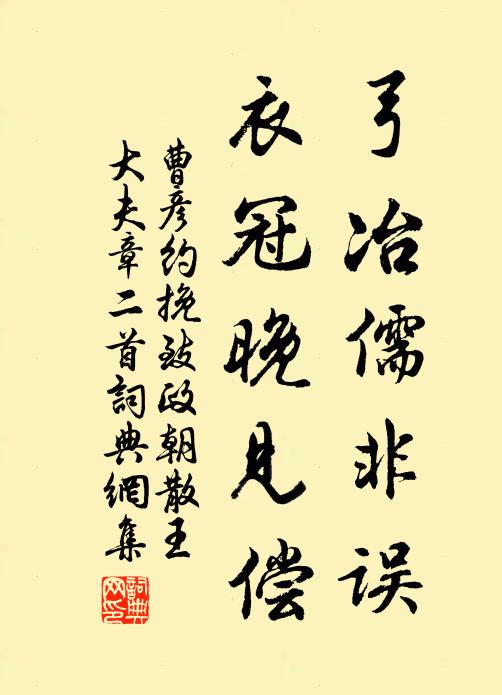 弓冶儒非误
衣冠晚见偿
曹彦约挽致政朝散王
大夫章二首詞典網集
詞典网印